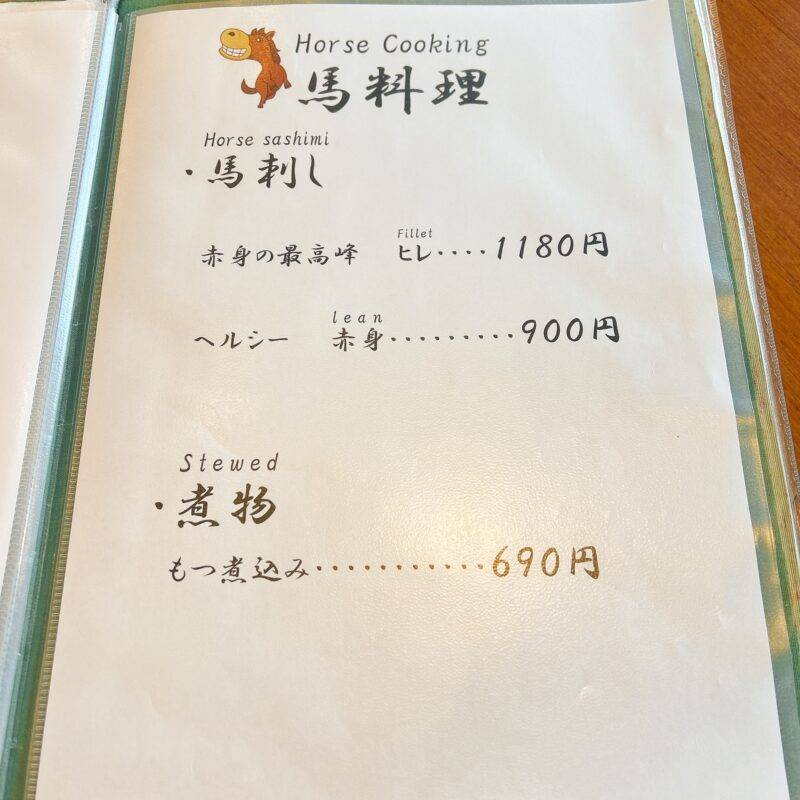 Horse Cooking
馬料理
Horse sashimi
・馬刺し
Fillet
赤身の最高峰 ヒレ････1180円
lean
ヘルシー 赤身･････････900円
Stewed
・煮物
もつ煮込み･･･････････690円